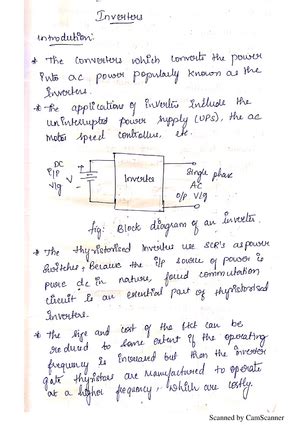 Inverters
Introdution:
* The converters which converts the power
into a.c power popularly known as the
Inverters.
* The applications of inverter include the
uninterrupted power supply (UPS), the ac
motor speed controller, etc.
DC
I/P
Vlg
V
Inverter
Single phase
AC
O/P Vlg
fig: Block diagram of an inverter.
* The thyristorised inverters use SCR's as power
switches, because the i/p source of power is
pure dc in nature, forced commutation
circuit is an essential part of thyristorised
Inverters.
* The size and cost of the can be
reduced to some extent if the operating
frequency is increased but then the inverter
gate thyristors are manufactured to operate
at a higher frequency, which are costly.
Scanned by CamScanner